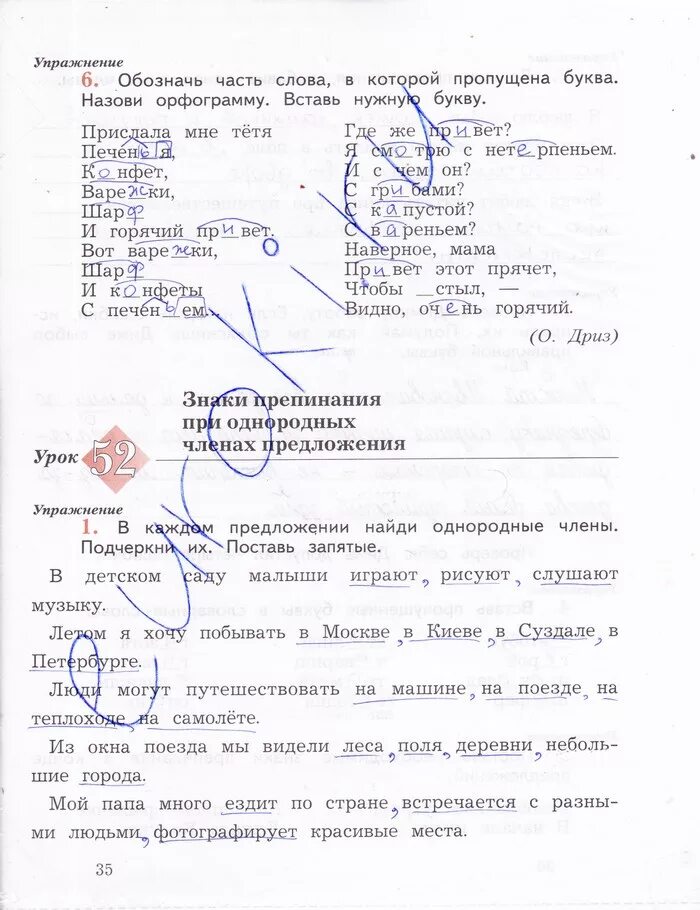 Упражнение
6. Обозначь часть слова, в которой пропущена буква.
Назови орфограмму. Вставь нужную букву.
Прислала мне тётя
Печенья,
Конфет,
Варежки,
Шарф
И горячий привет.
Вот варежки,
Шарф
И конфеты
С печеньем...
Где же привет?
Я смотрю с нетерпеньем.
И с чем он?
С грибами?
С капустой?
С вареньем?
Наверное, мама
Привет этот прячет,
Чтобы _стыл, —
Видно, очень горячий.
(О. Дриз)
Знаки препинания
при однородных
членах предложения
Урок 52
Упражнение
1. В каждом предложении найди однородные члены.
Подчеркни их. Поставь запятые.
В детском саду малыши играют, рисуют, слушают
музыку.
Летом я хочу побывать в Москве, в Киеве, в Суздале, в
Петербурге.
Люди могут путешествовать на машине, на поезде, на
теплоходе, на самолёте.
Из окна поезда мы видели леса, поля, деревни, неболь-
шие города.
Мой папа много ездит по стране, встречается с разны-
ми людьми, фотографирует красивые места.
35